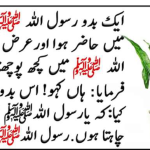 ایک بدو رسول اللہ ﷺ
میں حاضر ہوا اور عرض
اللہ ﷺ میں کچھ پوچھنا
فرمایا: ہاں کہو! اس بدو
کیا: کہ یا رسول اللہ ﷺ
چاہتا ہوں۔ رسول اللہ ﷺ